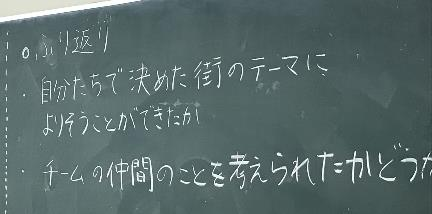 ○ふり返り
・自分たちで決めた街のテーマに
よりそうことができたか
・チームの仲間のことを考えられたかどうか